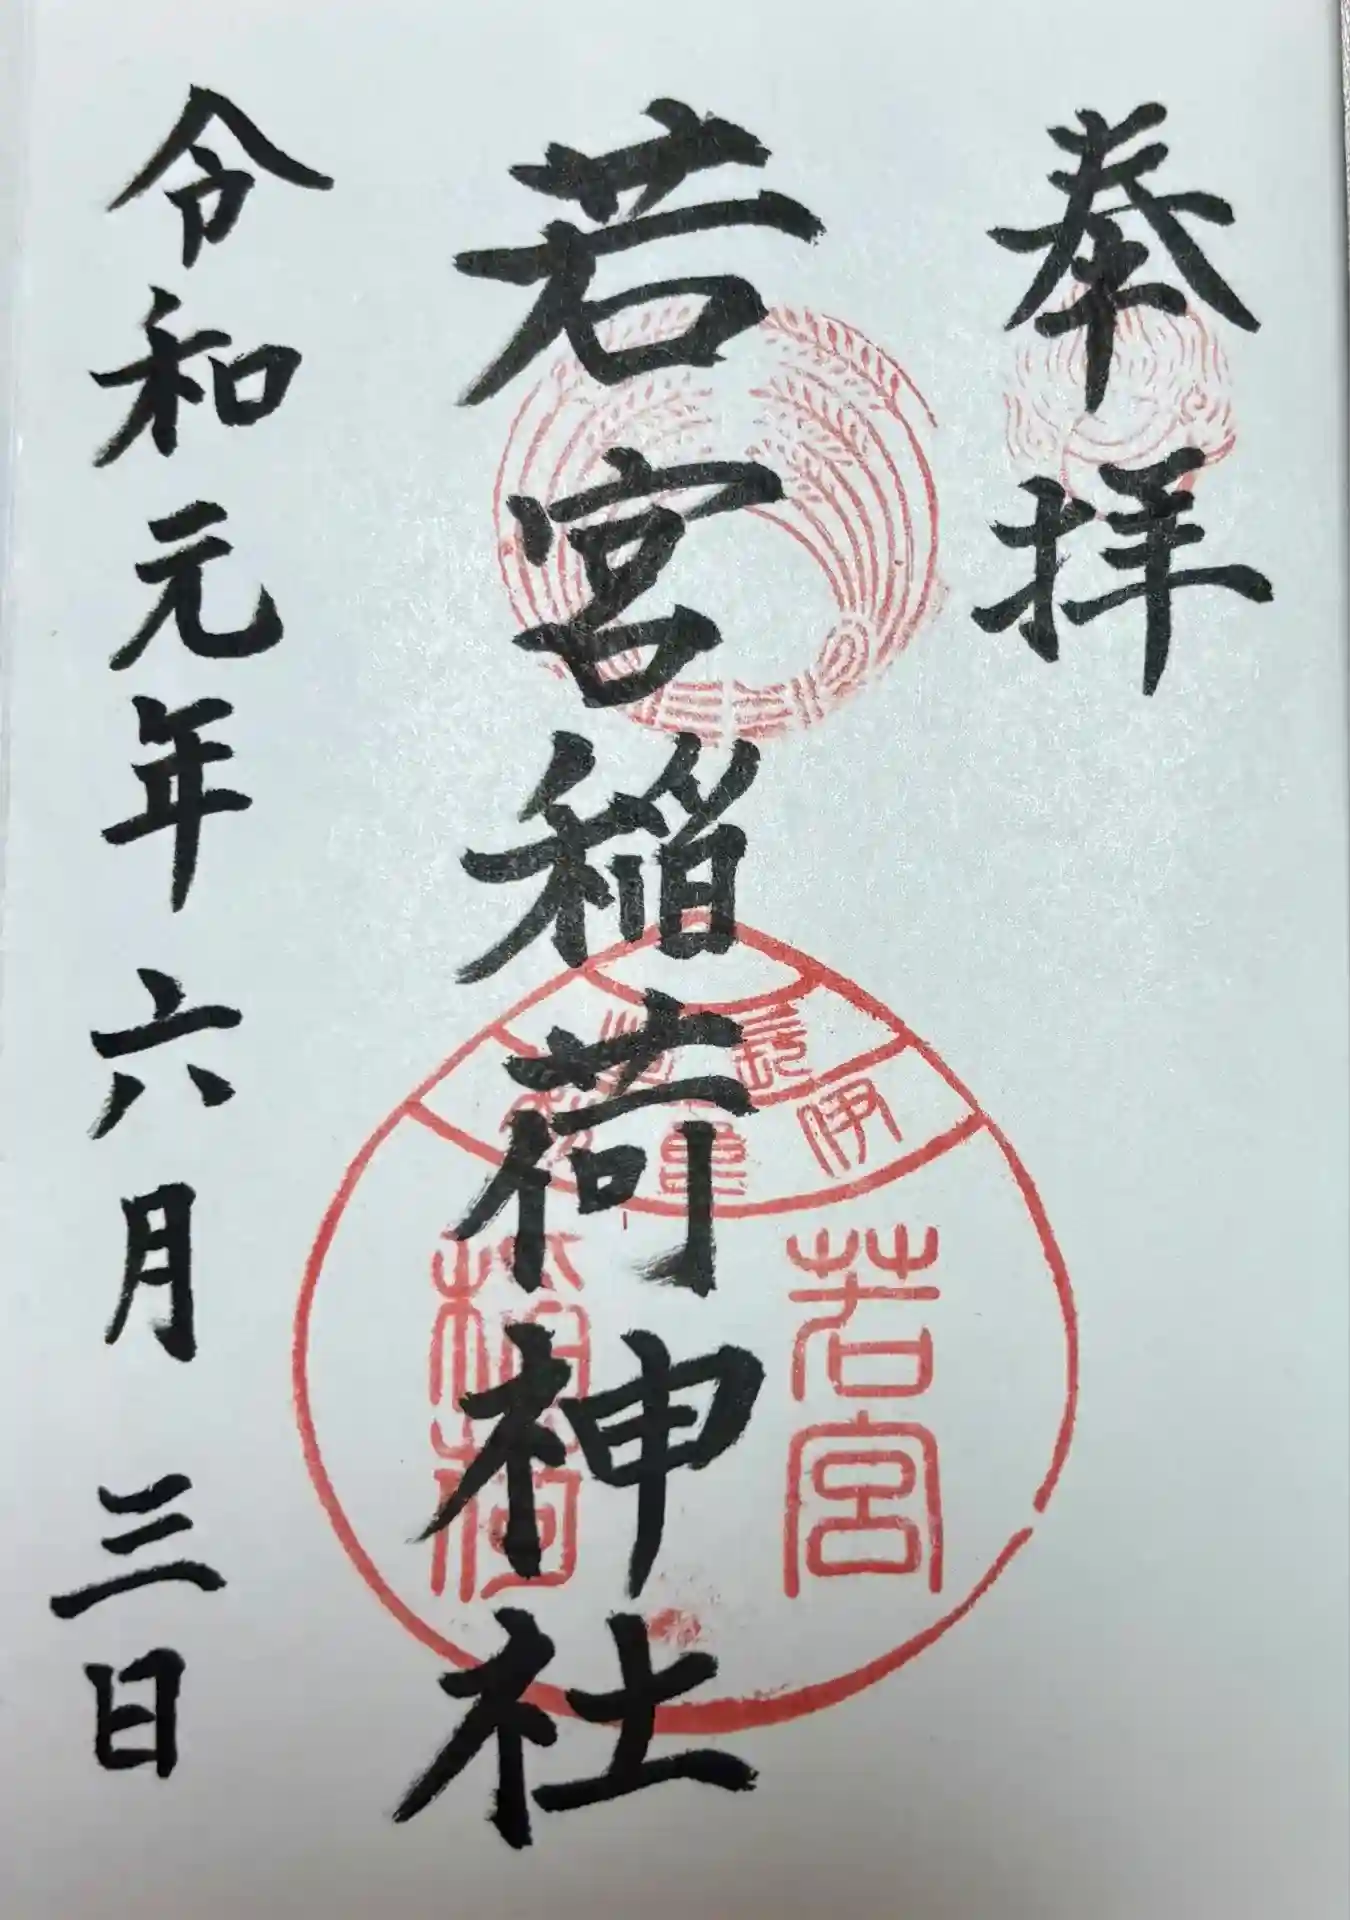 奉拝
若宮稲荷神社
令和元年六月三日
若宮
稲荷